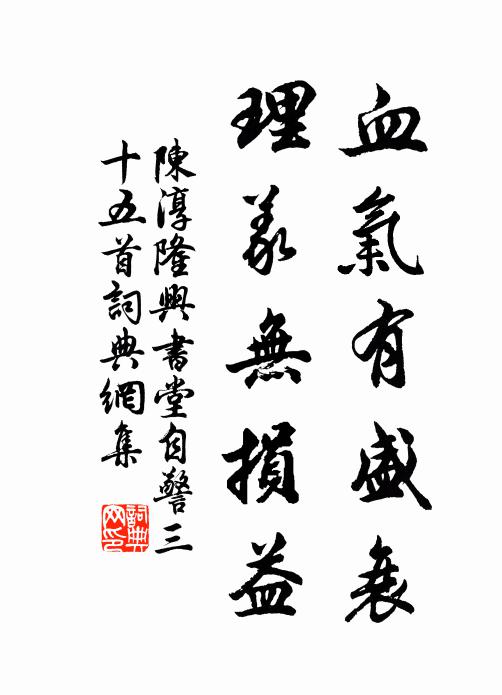 血氣有盛衰
理義無損益
陳淳隆興書堂自警三
十五首詞典網集
詞典
网印